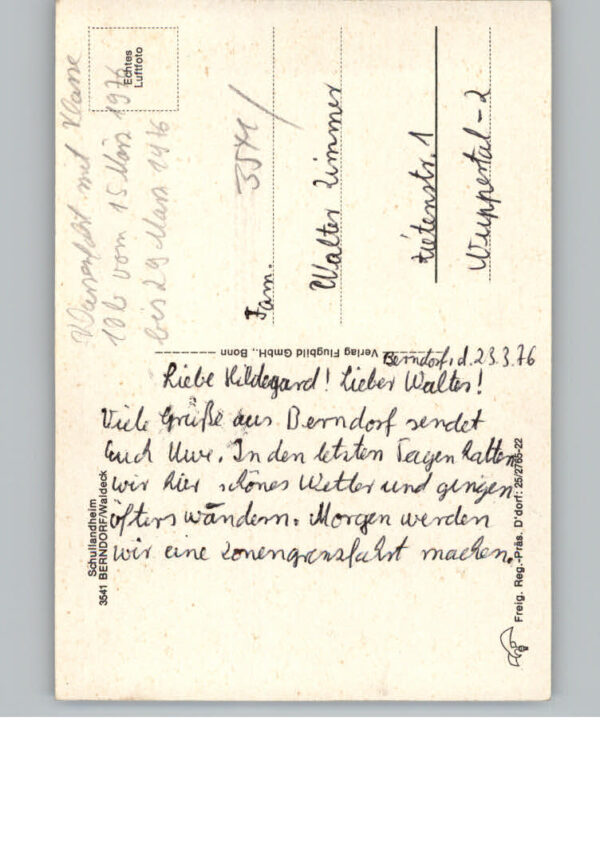 Berndorf, d. 23.3.76
Liebe Hildegard! Lieber Walter!
Viele Grüße aus Berndorf sendet
Euch Uwe. In den letzten Tagen hatten
wir hier schönes Wetter und gingen
öfters wandern. Morgen werden
wir eine Zonengrenzfahrt machen.
Schullandheim
3541 BERNDORF/Waldeck
Verlag Flugbild GmbH., Bonn
Freig. Reg.-Präs. D'dorf: 25/2765-22
Echtes
Luftfoto
mit Klasse
10b vom 15 März 1976
bis 29 März 1976
3541/
Fam.
Walter Zimmer
Zietenstr. 1
Wuppertal-2